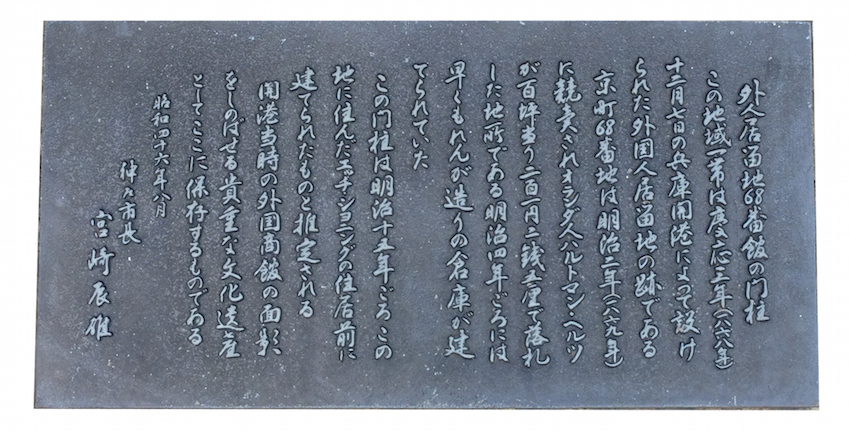 外人居留地68番館の門柱
この地域一帯は慶応三年(一八六八年)
十二月七日の兵庫開港によって設け
られた外国人居留地の跡である
京町68番地は明治二年(一八六九年)
に競売されオランダ人ハルトマン・ヘルツ
が百坪当り二百一円二銭五厘で落札
した地所である明治四年ごろには
早くもれんが造りの倉庫が建
てられていた
この門柱は明治十五年ごろこの
地に住んだエッチ・ショニングの住居前に
建てられたものと推定される
開港当時の外国商館の面影
をしのばせる貴重な文化遺産
としてここに保存するものである
昭和四十六年八月
神戸市長
宮崎辰雄